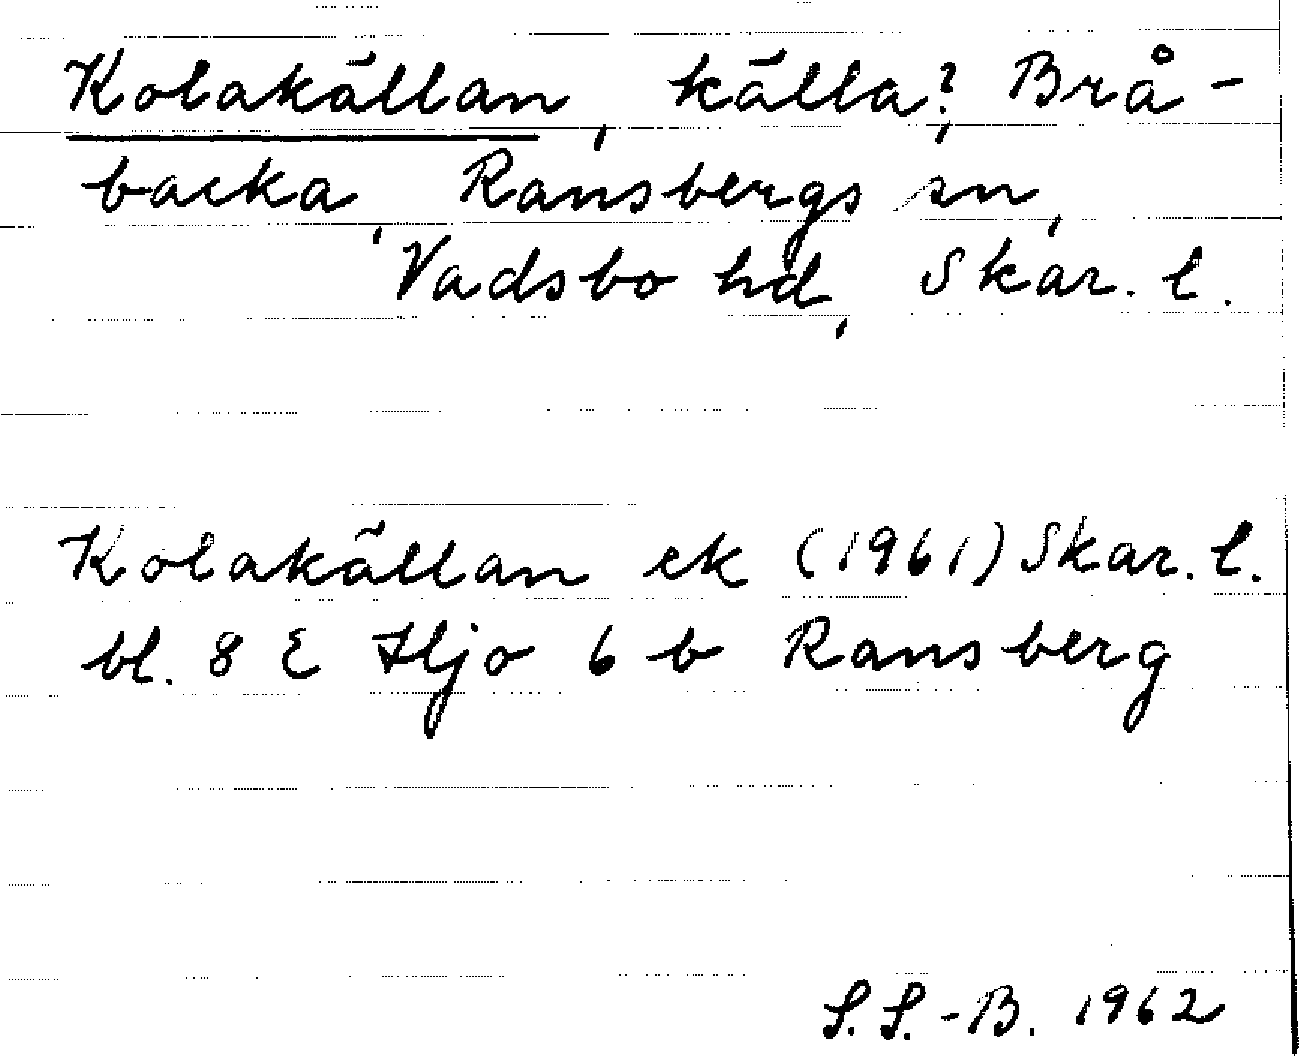 Kolakällan, källa?, Brå-
backa, Ransbergs sn,
Vadsbo hd, Skar. l.
Kolakällan ek (1961) Skar. l.
bl. 8 E Hjo 6 b Ransberg
S. S.-B. 1962